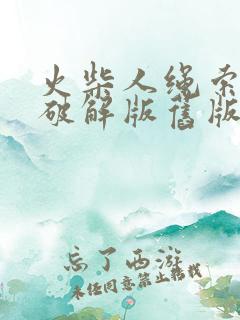 火柴人绳索
破解版旧版
忘了西游
未经同意禁止转载